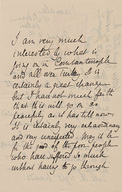 I am very much
interested to what is
going on in Constantinople
and all over Turkey. It is
certainly a great change
but I have not much faith
that this will go on as
peacefully as it has till now
It is certainly very extraordinary
and my one hope is
in the good of the poor people
who have suffered so much
without having to go through